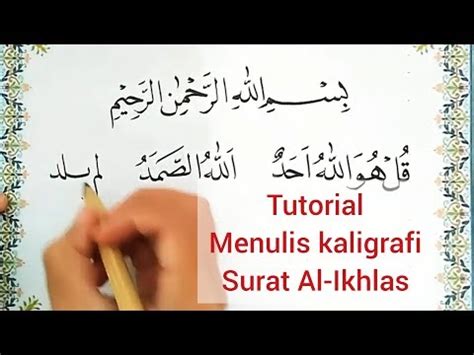 بِسْمِ اللهِ الرَّحْمٰنِ الرَّحِيْمِ
قُلْ هُوَ اللهُ اَحَدٌ اَللهُ الصَّمَدُ لم يلد
Tutorial
Menulis kaligrafi
Surat Al-Ikhlas